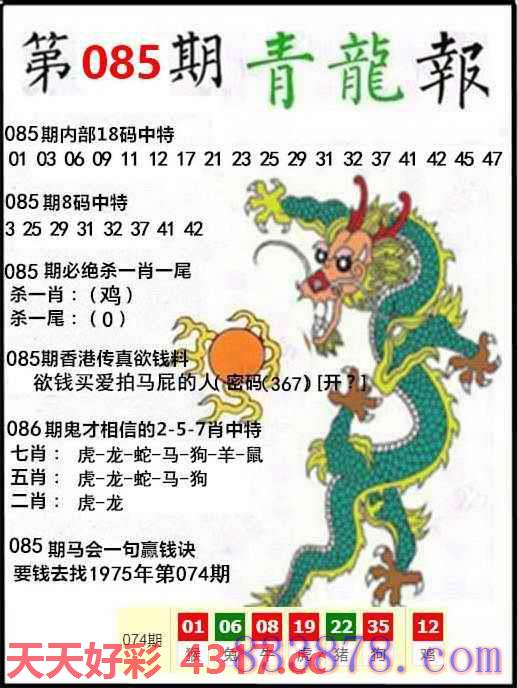 第085期青龍報
085期内部18码中特
01 03 06 09 11 12 17 21 23 25 29 31 32 37 41 42 45 47
085期8码中特
3 25 29 31 32 37 41 42
085期必绝杀一肖一尾
杀一肖：(鸡)
杀一尾：(0)
085期香港传真欲钱料
欲钱买爱拍马屁的人(密码(367)[开?]
086期鬼才相信的2-5-7肖中特
七肖： 虎-龙-蛇-马-狗-羊-鼠
五肖： 虎-龙-蛇-马-狗
二肖： 虎-龙
085期马会一句赢钱诀
要钱去找1975年第074期
074期 01 06 08 19 22 35 12
猴 兔 牛 虎 猪 狗 鸡
天天好彩 4317.cc